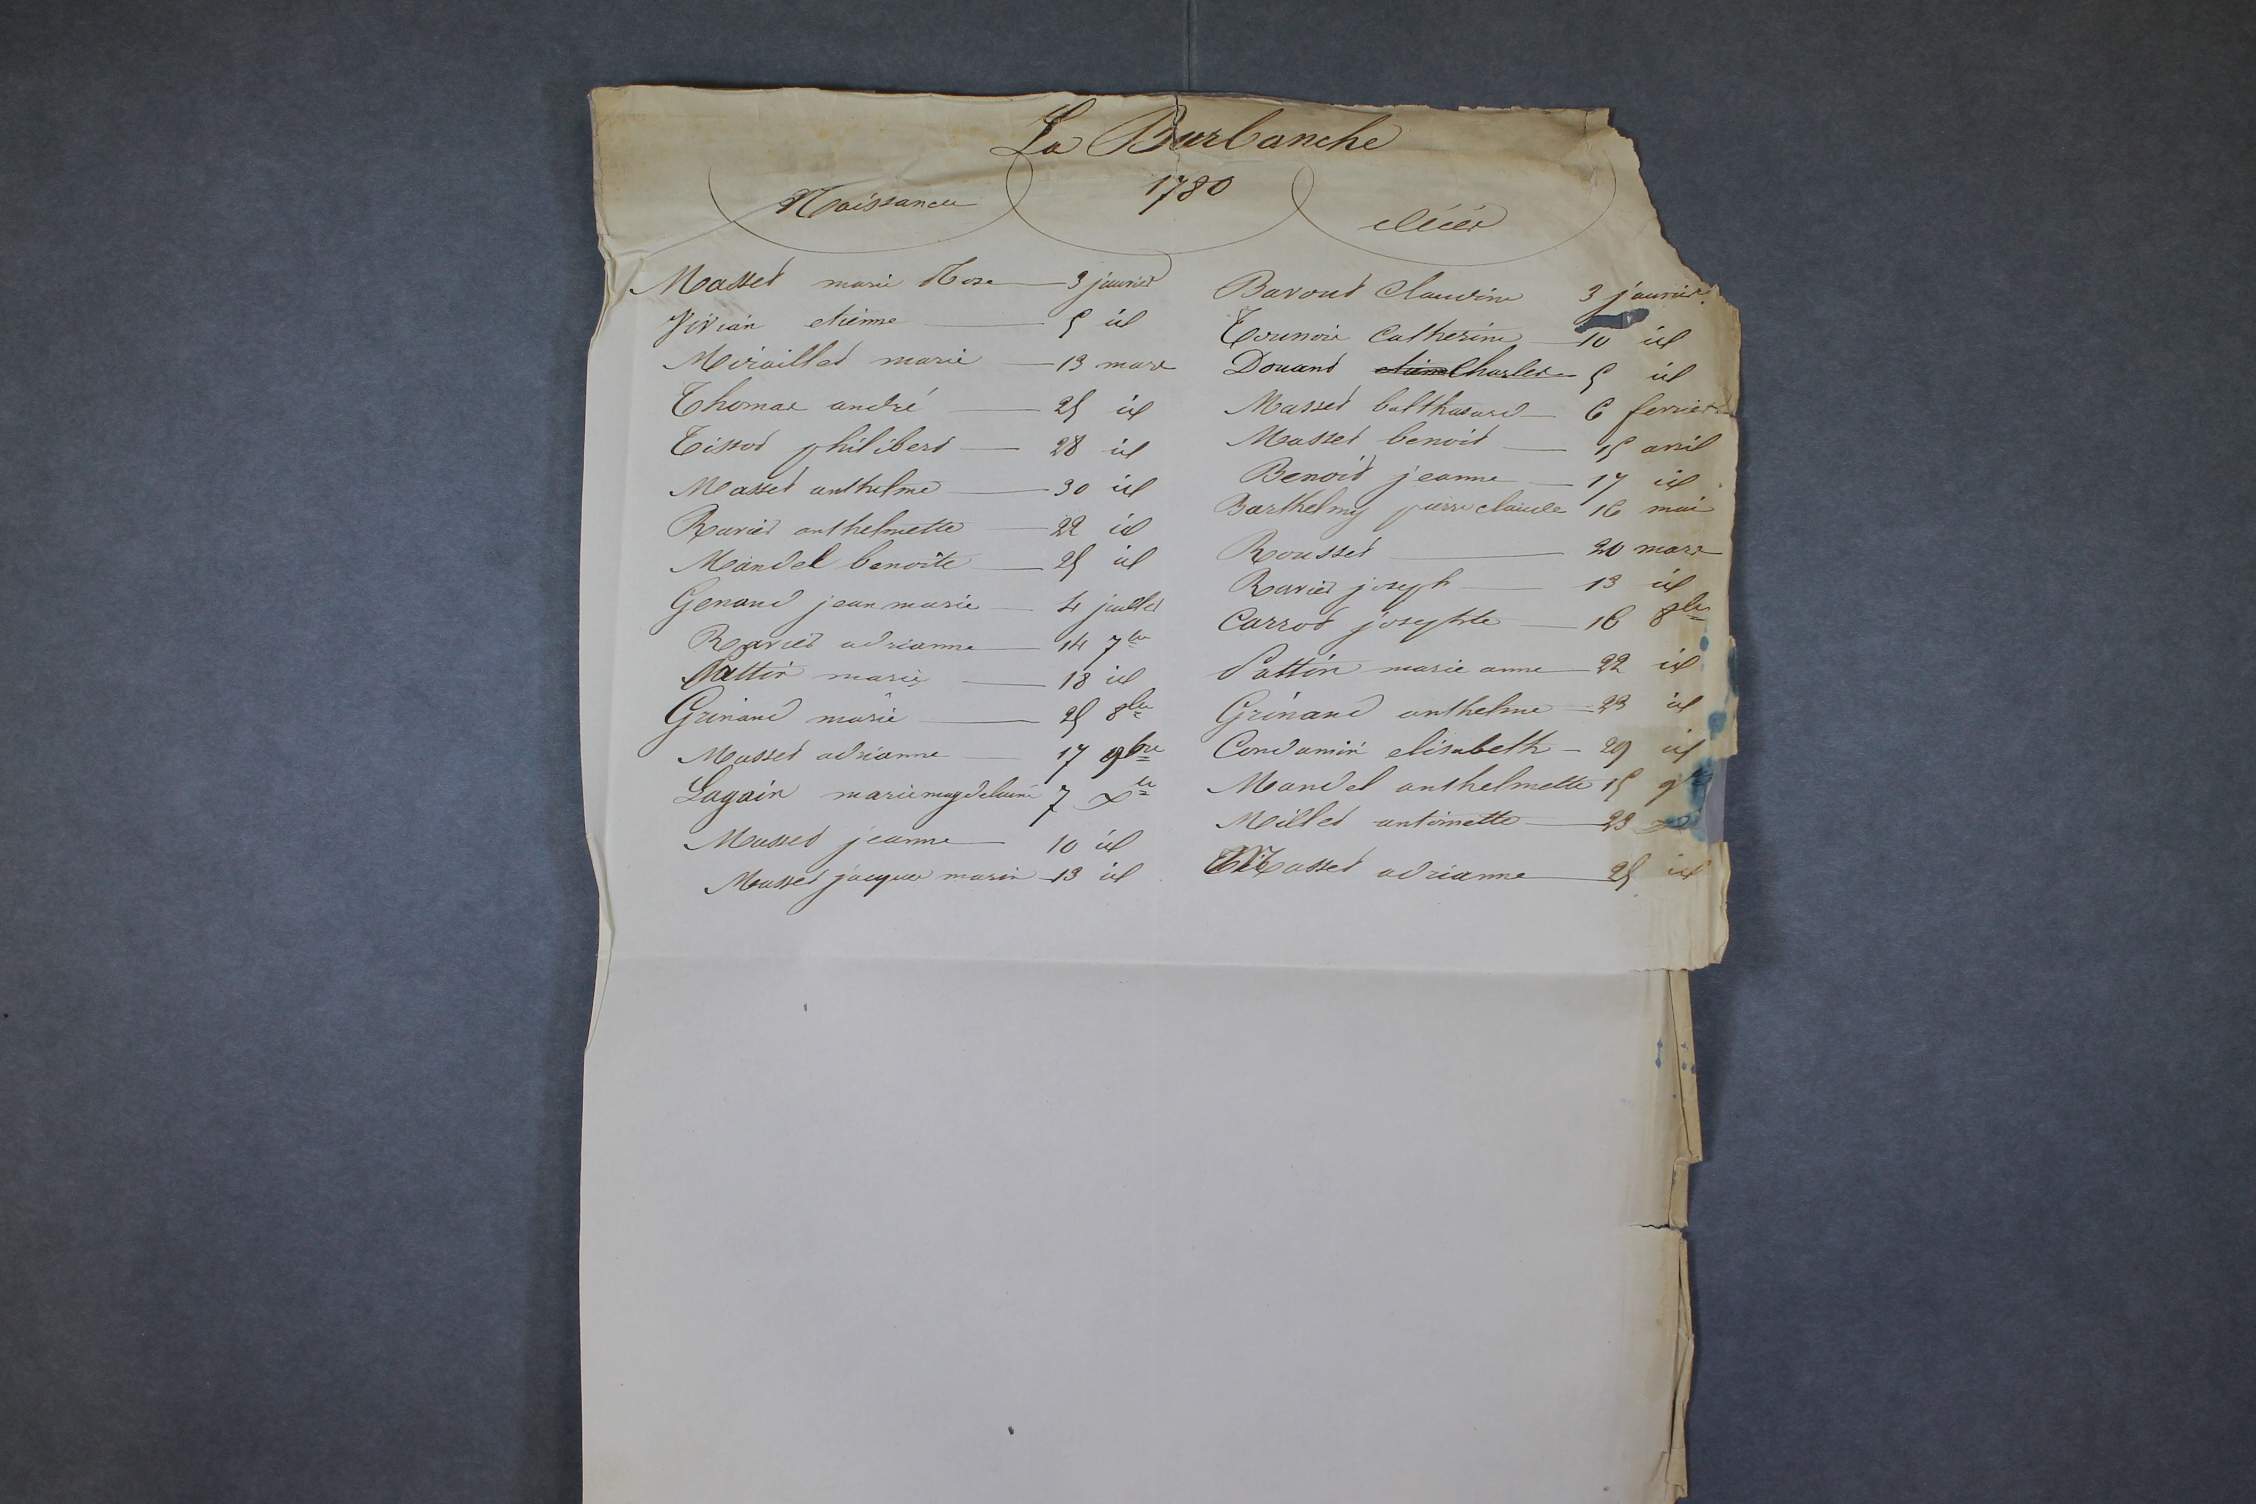 La Burbanche
1780
Naissances
décès
Masset marie Rose 3 janvier
Vivian etienne 5 id
Miraillet marie 13 mars
Thomas andré 25 id
Tissot philibert 28 id
Masset anthelme 30 id
Ravier anthelmette 22 id
Mandel benoîte 25 id
Genand jean marie 4 juillet
Ravier adrianne 14 7bre
Pattin marie 18 id
Grinand marie 25 8bre
Masset adrianne 17 9bre
Lagain marie magdelaine 7 xbre
Masset jeanne 10 id
Masset jacques marin 13 id
Bavout Claudine 3 janvier
Catherine 10 id
Douand Charles 5 id
Masset balthasard 6 fevrier
Masset benoit 15 avril
Benoit jeanne 17 id
Barthelmy pierre claude 16 mai
Rousset 20 mars
Ravier joseph 13 id
Carrot josephte 16 8bre
Pattin marie anne 22 id
Grinand anthelme 23 id
Condamin elisabeth 29 id
Mandel anthelmette 15 9bre
Millet antoinette 23 x
Masset adrianne 25 id